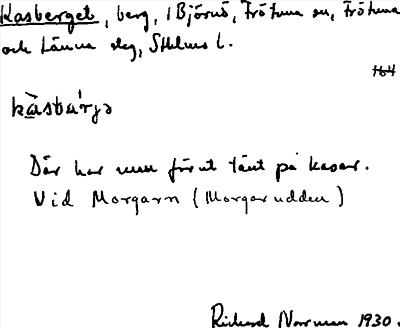 Kasberget, berg, i Björnö, Frötuna sn, Frötuna
och Länna slg, Sthlms l.
164
kàsbær̀jə
Där har man förut tänt på kasar.
Vid Morgarn (Morgarudden)
Richard Norrman 1930.